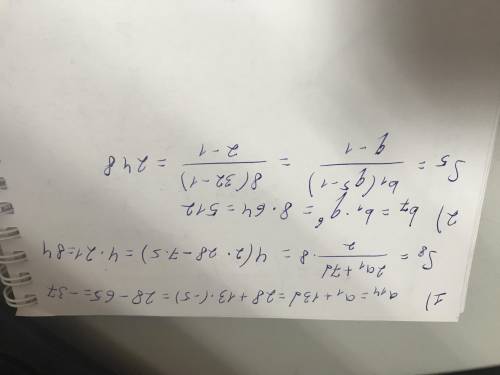 1) a₁₄ = a₁ + 13d = 28 + 13·(-5) = 28 - 65 = -37
S₈ = (2a₁ + 7d)/2 · 8 = 4(2·28 - 7·5) = 4·21 = 84
2) b₇ = b₁·q⁶ = 8·64 = 512
S₅ = b₁(q⁵ - 1)/(q - 1) = 8(32 - 1)/(2 - 1) = 248